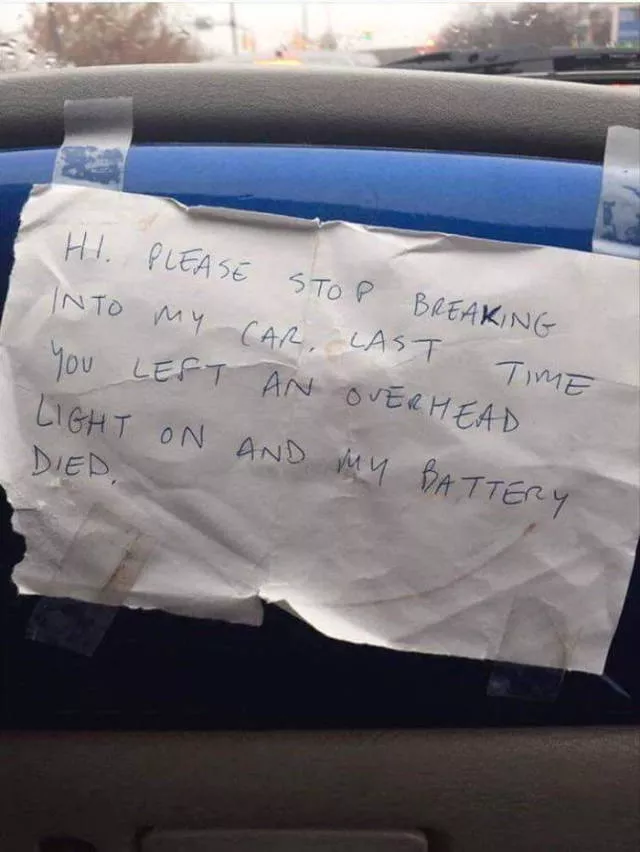 HI. PLEASE STOP BREAKING
INTO MY CAR. LAST TIME
YOU LEFT AN OVERHEAD
LIGHT ON AND MY BATTERY
DIED.